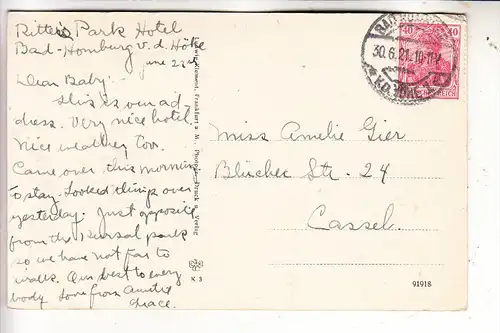 Ritters Park Hotel
Bad-Homburg v. d. Höhe
June 22nd
Dear Baby:-
This is our ad-
dress. Very nice hotel
Nice weather too.
Came over this morning
to stay. Looked things over
yesterday. Just opposite
from the Kursal park
so we have not far to
walk. Our best to every
body Love from Auntie
Grace.
Miss Amelie Gier
Blücher Str. 24
Cassel.
30.6.21. 10-11V.
40 40
Frankfurt a. M. Photogr. Druck u. Verlag
K 3
91918